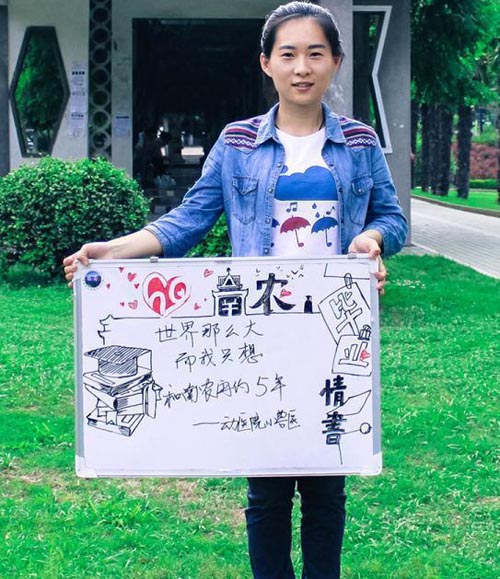 南农
世界那么大
而我只想
和南农再约5年
——动医院小兽医
毕业
情書